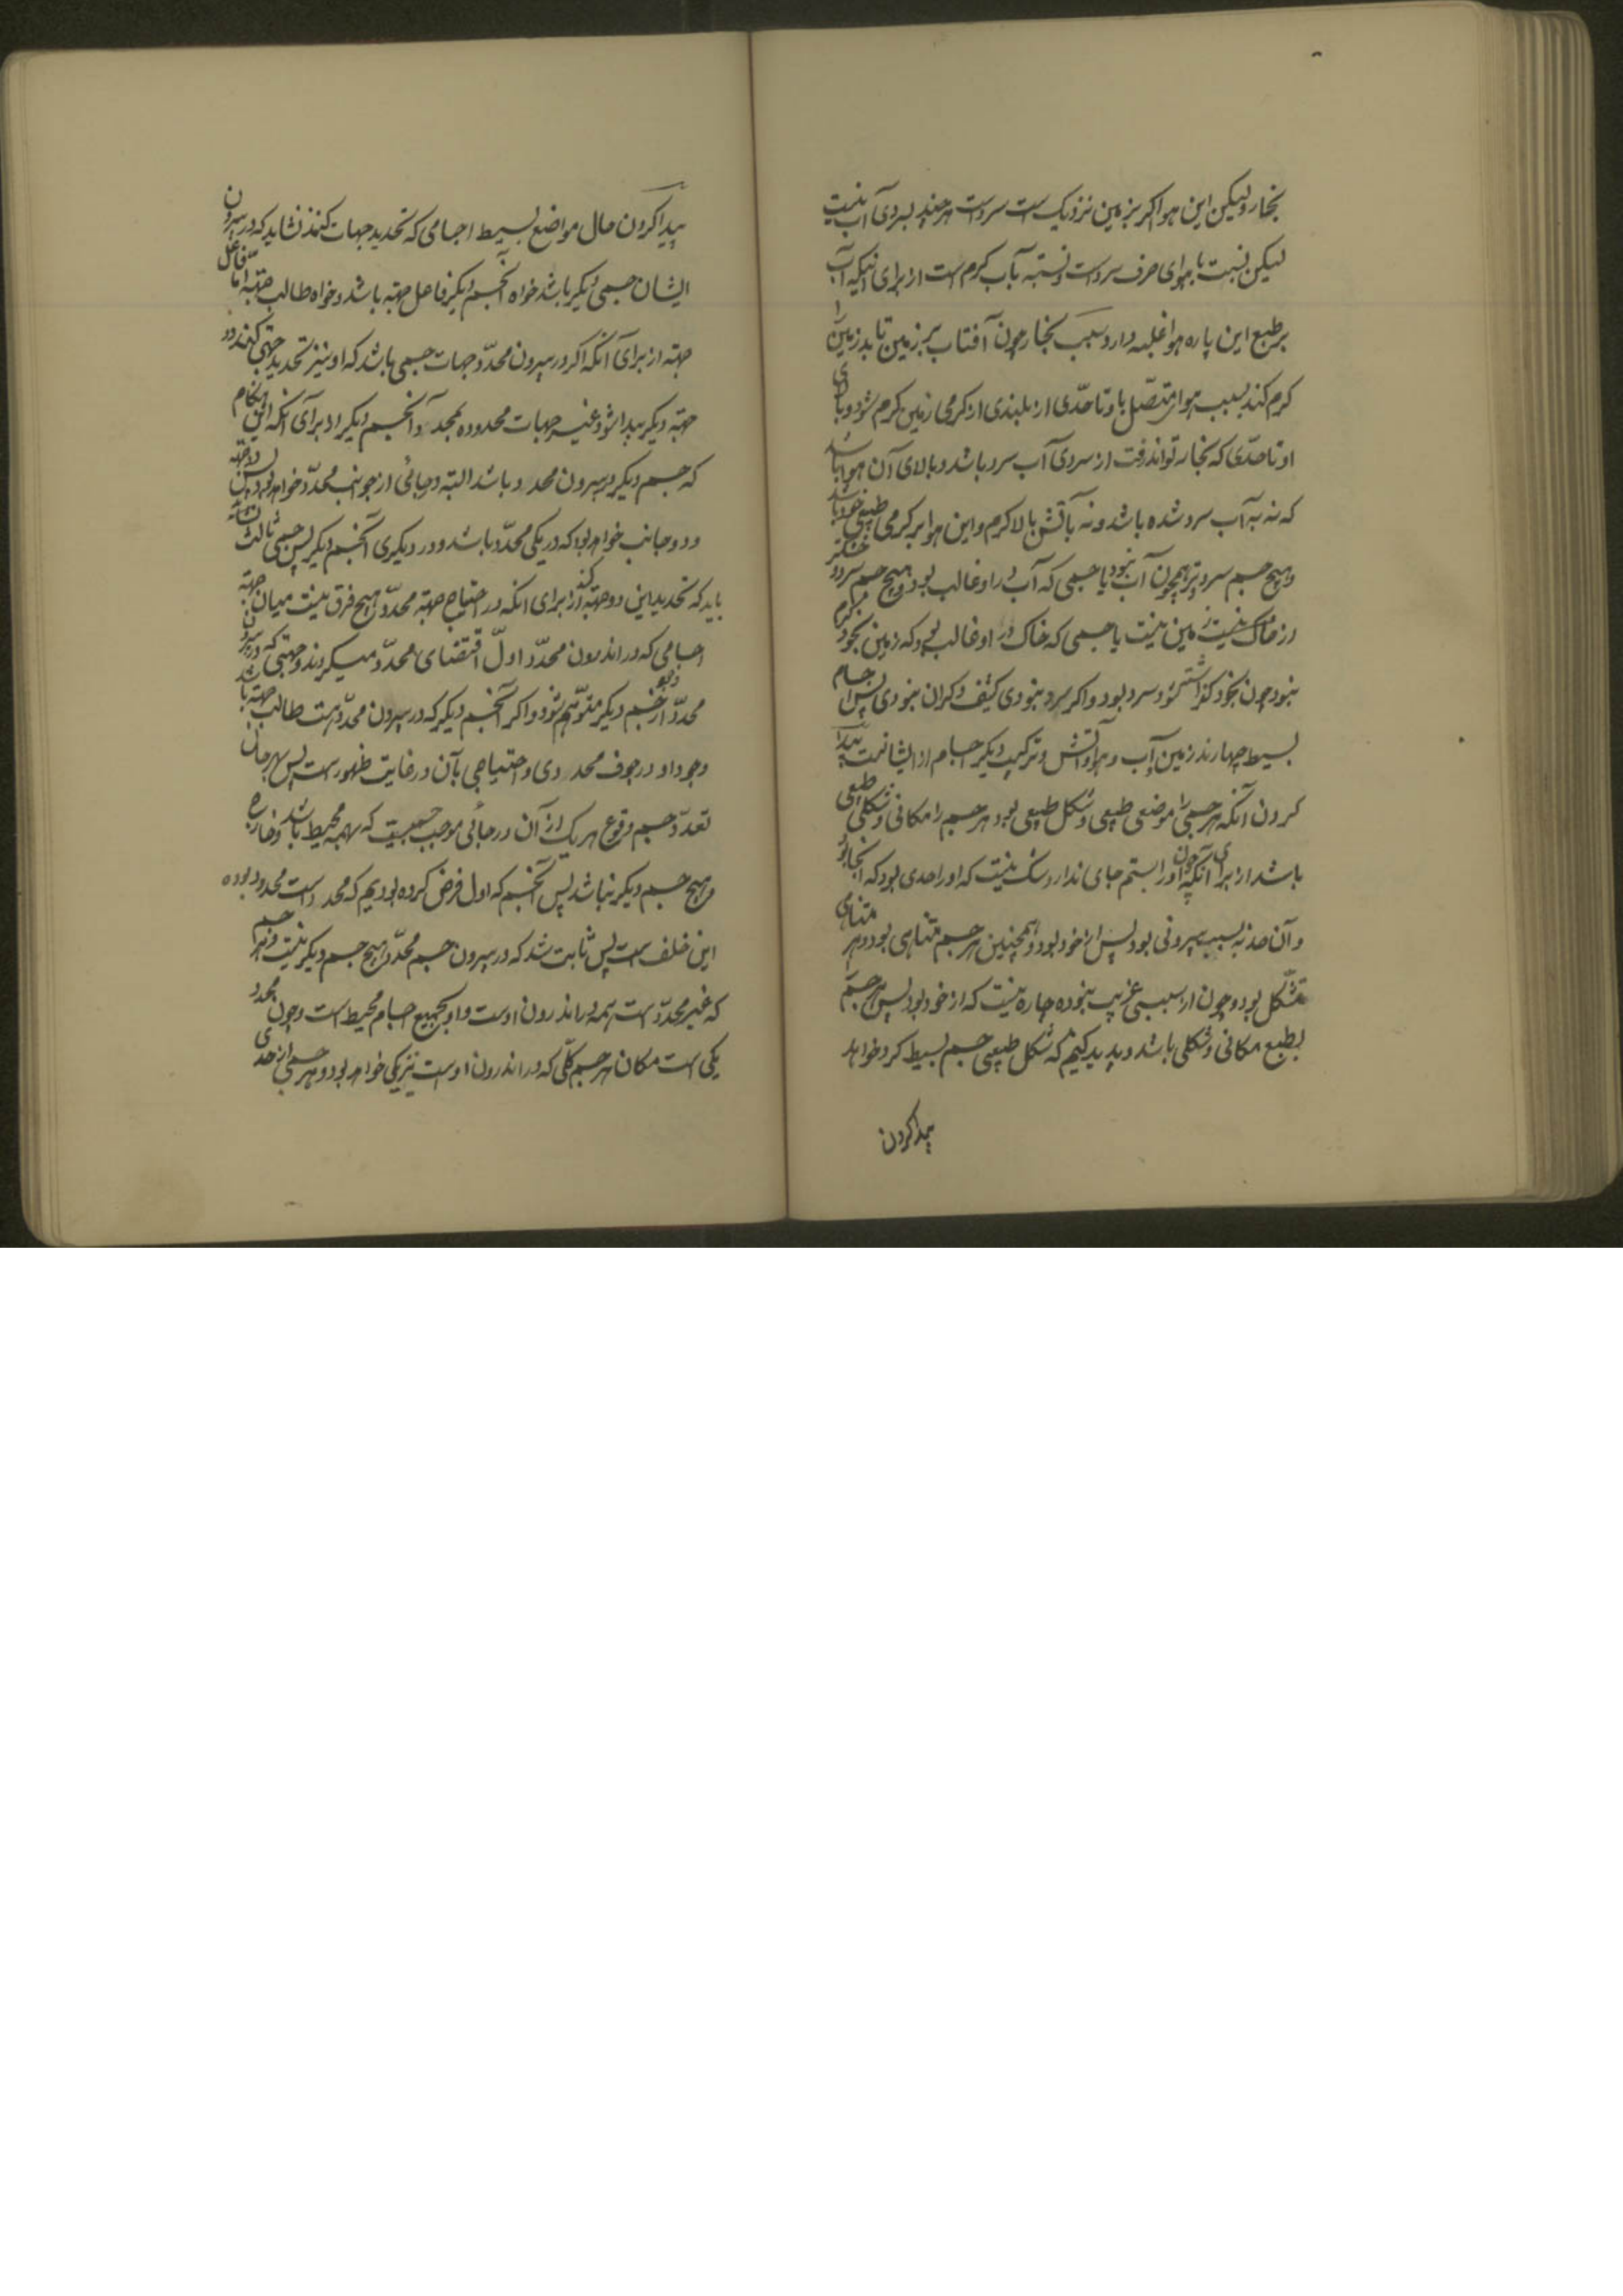 بخار ولیکن این هوا کر بزمین نزدیک است سردست هرچند بسردی آب نیست
لیکن نسبت باهوای صرف سردست و نسبته بآب کرم ست از برای انیکه آب
برطبع این پاره هوا غلبه دارد بسبب بخار چون آفتاب بر زمین تابد زمین را
کرم کند بسبب هوا متصّل باو تاحدّی از بلندی از کرمی زمین کرم شود و بالای
او تا حدّی که بخار تواند رفت از سردی آب سرد باشد و بالای آن هوا باشد
که نه به آب سرد شده باشد و نه بآتش بالا کرم و این هوا بر کرمی طبیعی خود باشد
و هیچ جسم سرد تر همچون آب نبود یا جسمی که آب در او غالب بود و هیچ جسم سرد و خشکتر
از خاک نیست زمین نیست یا جسمی که خاک در او غالب بود که زمین بخود کرم
نبود چون بخود کذاشته شود سرد بود و اکر سرد نبودی کثیف و کران نبودی پس اجسام
بسیط چهارند زمین و آب و هوا و آتش و ترکیب دیکر اجسام از ایشانست پیدا
کردن آنکه هر جسمی را موضعی طبیعی و شکل طبیعی بود هر جسم را مکانی و شکلی طبیعی
باشد از برای آنکه چون اورا بستم جای ندارد شک نیست که اورا حدی بود که آنجا بود
و آن حد نه بسبب بیرونی بود پس از خود بود و همچنین هر جسم متناهی بود و هر متناهی
متشکّل بود و چون از سببی غریب نبوده چاره نیست که از خود بود پس هر جسم
بطبع مکانی و شکلی باشد و پدید کنیم که شکل طبیعی جسم بسیط کرد خواهد
پیدا کردن
پیدا کردن حال مواضع بسیط اجسامی که تحدید جهات کنند نشاید که در بیرون
ایشان جسمی دیکر باشد خواه آنجسم دیکر فاعل جهته باشد و خواه طالب جهته امّا فاعل
جهته از برای آنکه اکر در بیرون محدّد جهات جسمی باشد که او نیز تحدید جهتی کند دو
جهته دیکر پیدا شود غیر جهات محدوده بمحدد و آنجسم دیکر از برای آنکه
که جسم دیکر در بیرون محدد باشد البته در جائی از جوانب محدّد خواهد بود پس
و دو جانب خواهد بود که در یکی محدّد باشد و در دیکری آنجسم دیکر پس جسمی ثالث
باید که تحدید این دو جهته کند از برای انکه در احتیاج جهته محدّد هیچ فرق نیست میان جهته
اجسامی که در اندرون محدّد اولّ اقتضای محدّد میکردند و جهتی که در بیرون
محدّد از جسم دیکر متوّهم شود و اکر آنجسم دیکر که در بیرون محدّدست طالب جهته باشد
وجود او در جوف محددی و احتیاجی بآن در غایت ظهورست پس بهر حال
تعدّد جسم و وقوع هر یک از آن در جائی موجب جسمیست که بهمه محیط باشد و خارج
و هیچ جسم دیکر نباشد پس آنجسم که اول فرض کرده بودیم که محددست محدود بوده
این خلف ست پس ثابت شد که در بیرون جسم محدّد هیچ جسم دیکر نیست و هر جسم
که غیر محدّدست همه در اندرون اوست و او بجمیع اجسام محیط است و چون محدد
یکی ست مکان هر جسم کلّی که در اندرون اوست نیز یکی خواهد بود و هر جسمی را حدی